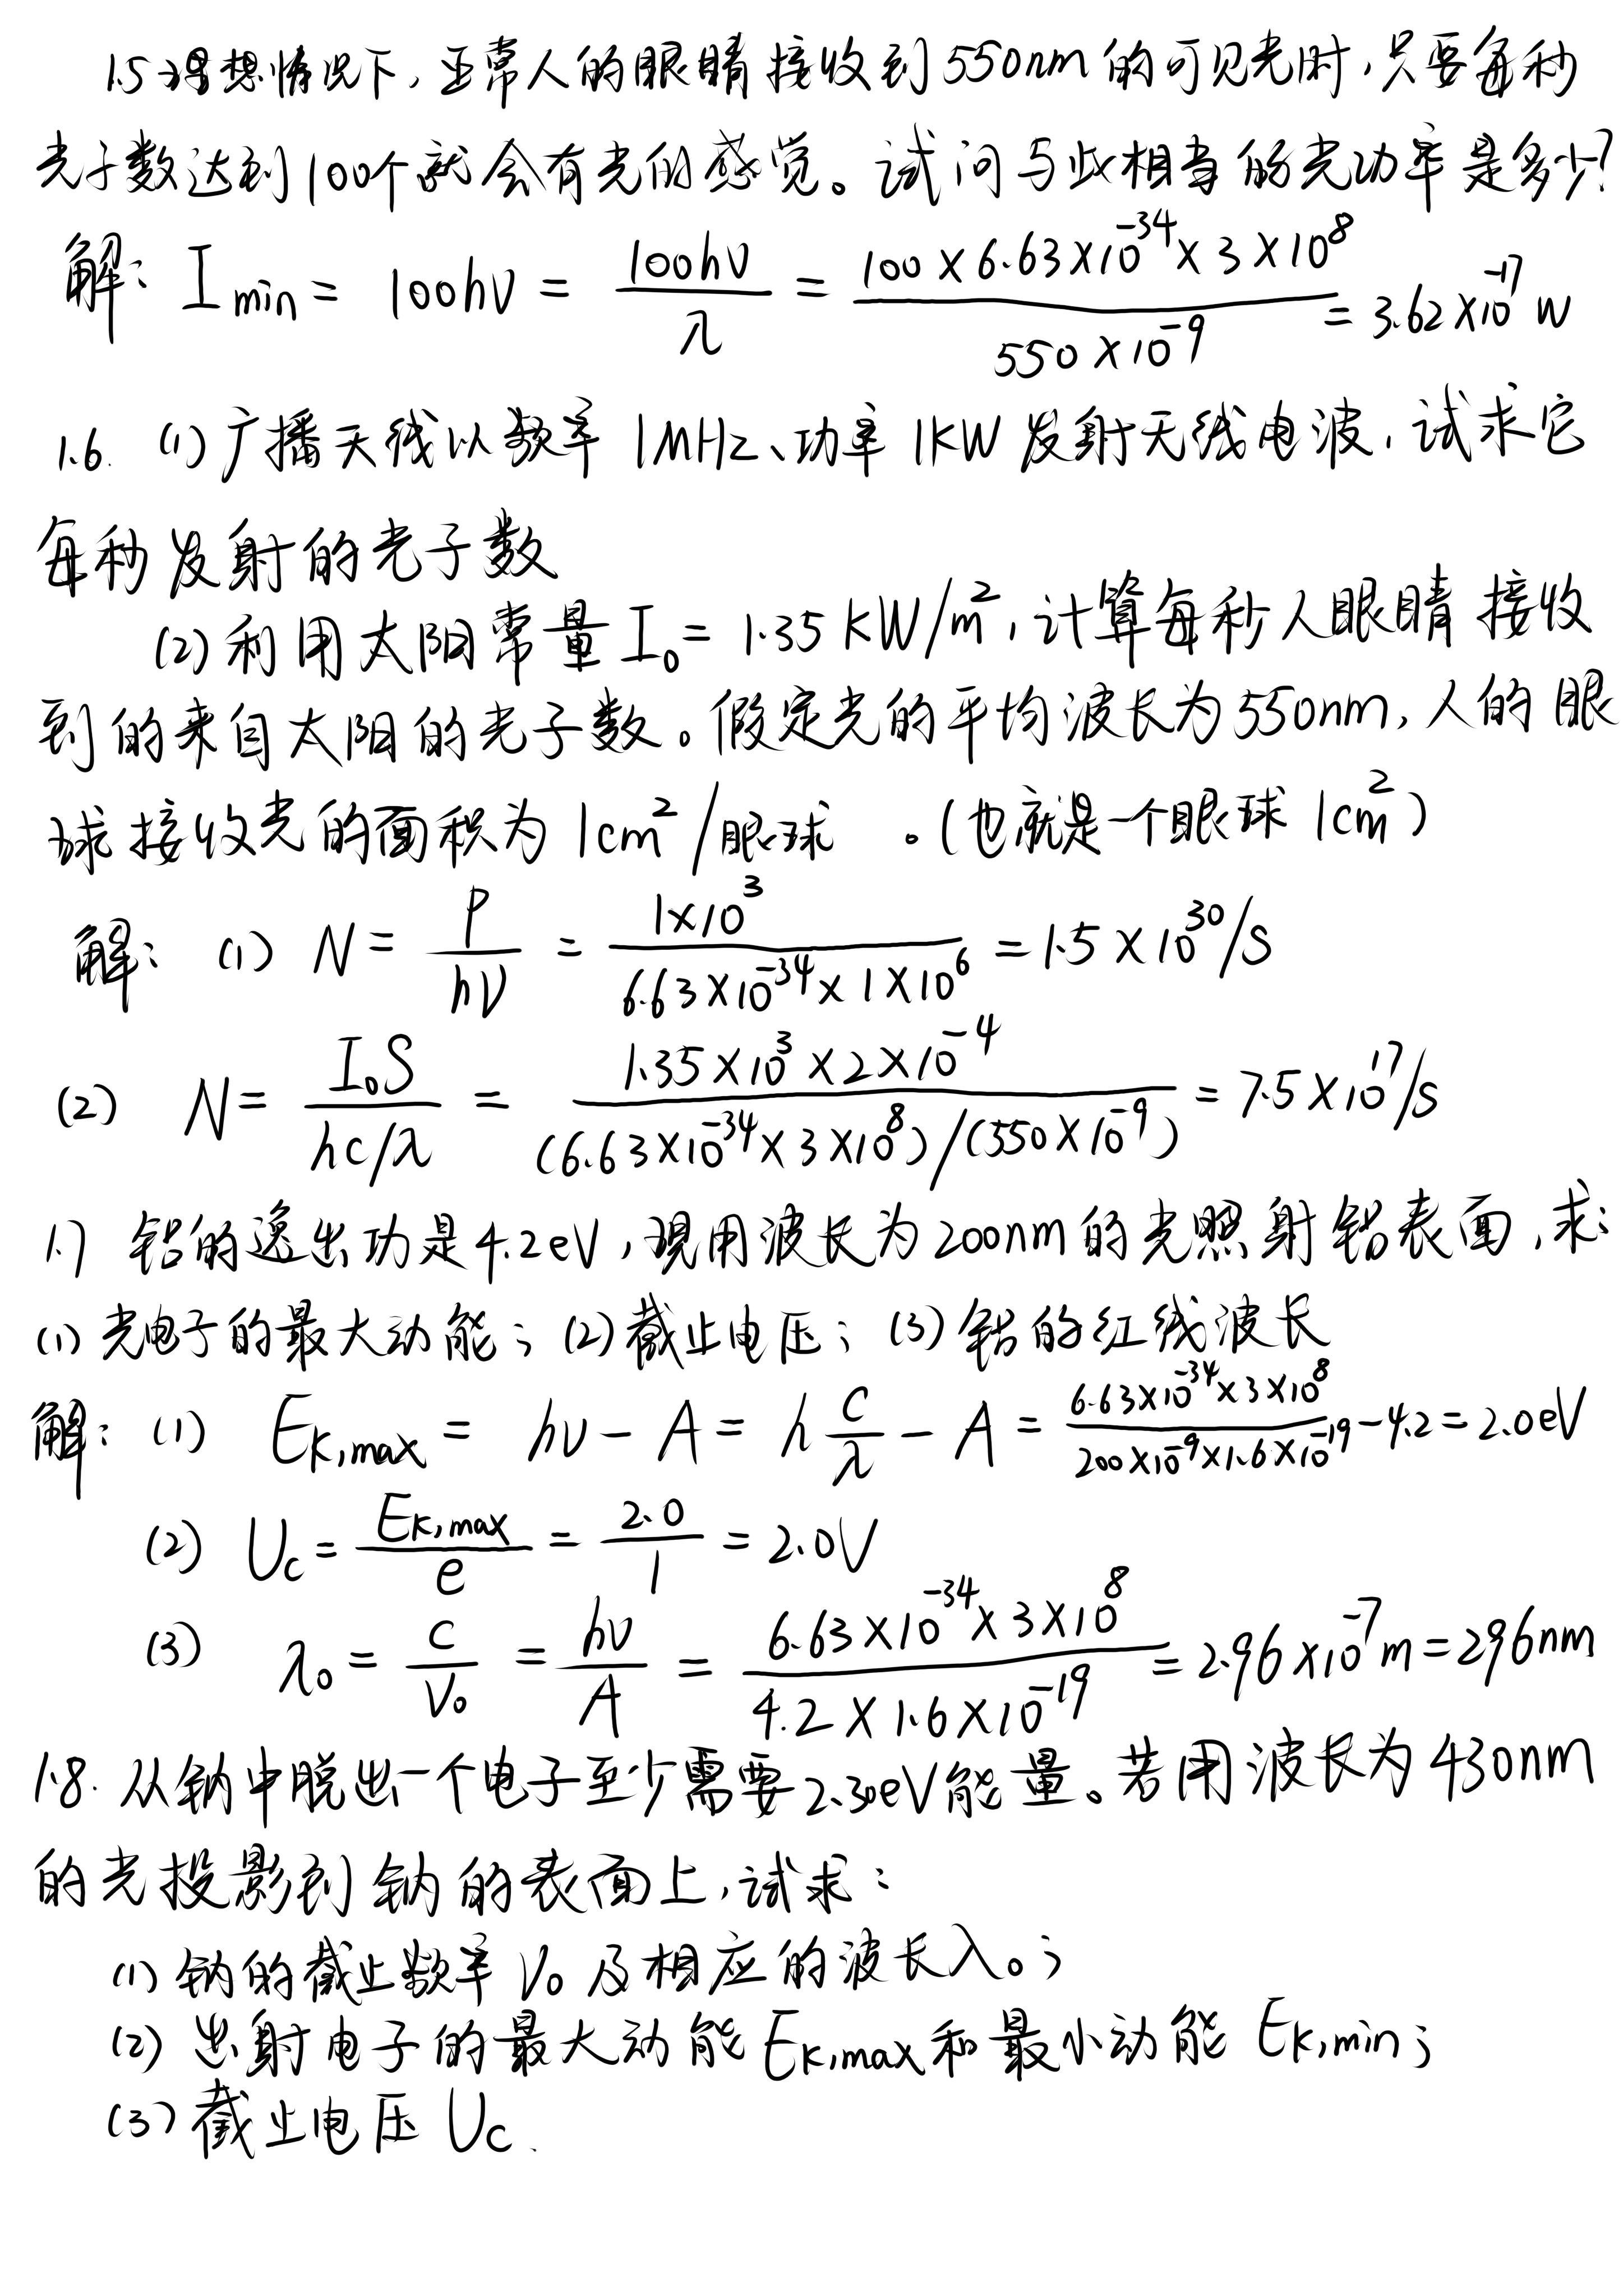 1.5 理想情况下,正常人的眼睛接收到550nm的可见光时,只要每秒
光子数达到100个就会有光的感觉。试问与此相当的光功率是多少?
解: I_min = 100hν = 100hν/λ = (100×6.63×10^-34×3×10^8)/(550×10^-9) = 3.62×10^-17 W
1.6. (1)广播天线以频率 1MHz、功率 1KW 发射无线电波,试求它
每秒发射的光子数
(2)利用太阳常量 I₀= 1.35 KW/m²,计算每秒人眼睛接收
到的来自太阳的光子数。假定光的平均波长为550nm,人的眼
球接收光的面积为 1cm²/眼球 。(也就是一个眼球 1cm²)
解: (1) N = P/hν = (1×10^3)/(6.63×10^-34×1×10^6) = 1.5×10^30/s
(2) N = I₀S/(hc/λ) = (1.35×10^3×2×10^-4)/((6.63×10^-34×3×10^8)/(550×10^-9)) = 7.5×10^17/s
1.7 铝的逸出功是4.2eV,现用波长为200nm的光照射铝表面,求:
(1)光电子的最大动能;(2)截止电压;(3)铝的红线波长
解: (1) E_k,max = hν - A = h c/λ - A = (6.63×10^-34×3×10^8)/(200×10^-9×1.6×10^-19) - 4.2 = 2.0eV
(2) U_c = E_k,max/e = 2.0/1 = 2.0V
(3) λ₀ = c/ν₀ = hν/A = (6.63×10^-34×3×10^8)/(4.2×1.6×10^-19) = 2.96×10^-7 m = 296nm
1.8. 从钠中脱出一个电子至少需要2.30eV能量。若用波长为430nm
的光投影到钠的表面上,试求:
(1)钠的截止频率 ν₀ 及相应的波长λ₀;
(2)出射电子的最大动能 E_k,max 和最小动能 E_k,min;
(3)截止电压 U_c.